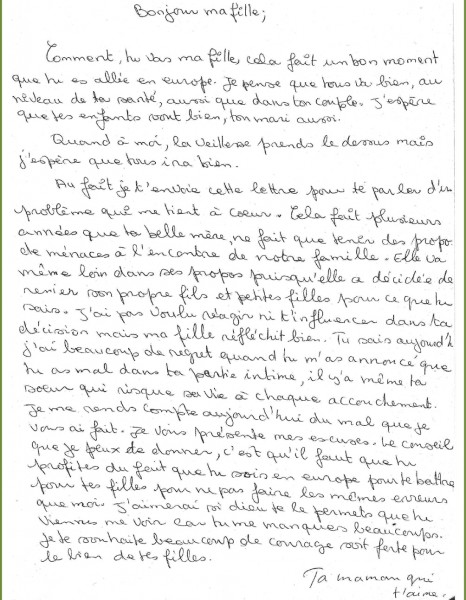 Bonjour ma fille;
Comment, tu vas ma fille, cela fait un bon moment
que tu es allée en europe. Je pense que tous va bien, au
niveau de ta santé, aussi que dans ton couple. J'espère
que tes enfants vont bien, ton mari aussi.
Quand à moi, la veillesse prends le dessus mais
j'espère que tous ira bien.
Au fait je t'envoie cette lettre pour te parler d'un
problème qui me tient à coeur. Cela fait plusieurs
années que ta belle mère, ne fait que tenir des propo
de ménaces à l'encontre de notre famille. Elle va
même loin dans ses propos puisqu'elle a décidée de
renier son propre fils et petites filles pour ce que tu
sais. J'ai pas voulu réagir ni t'influencer dans ta
décision mais ma fille réfléchit bien. Tu sais aujourd'h
j'ai beaucoup de regret quand tu m'as annoncé que
tu as mal dans ta partie intime, il y'a même ta
soeur qui risque sa vie à chaque accouchement.
Je me rends compte aujourd'hui du mal que je
vous ai fait. Je vous présente mes escuses. Le conseil
que je peux te donner, c'est qu'il faut que tu
profites du fait que tu sois en europe pour te battre
pour tes filles pour ne pas faire les mêmes erreurs
que moi. J'aimerai si dieu te le permets que tu
viennes me voir car tu me manques beaucoups.
Je te souhaite beaucoup de courage soit forte pour
le bien de tes filles.
Ta maman qui
t'aime.